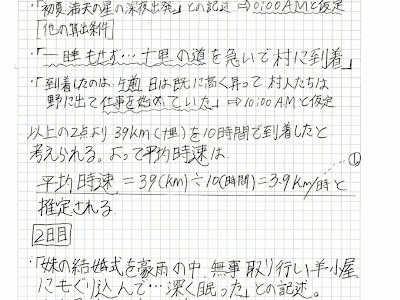 ・「初夏、満天の星の深夜出発」との記述 ⇒ 0:00AMと仮定
他の算出条件
・「一睡もせず…十里の道を急いで村に到着」
・「到着したのは、午前 日は既に高く昇って村人たちは
野に出て仕事を始めていた」⇒10:00AMと仮定
以上の2点より39km(十里)を10時間で到着したと
考えられる。よって平均時速は
①
平均時速 = 39(km)÷10(時間)=3.9km/時と
推定される
2日目
・「妹の結婚式を豪雨の中、無事取り行い、羊小屋
にもぐり込んで…深く眠った」との記述。